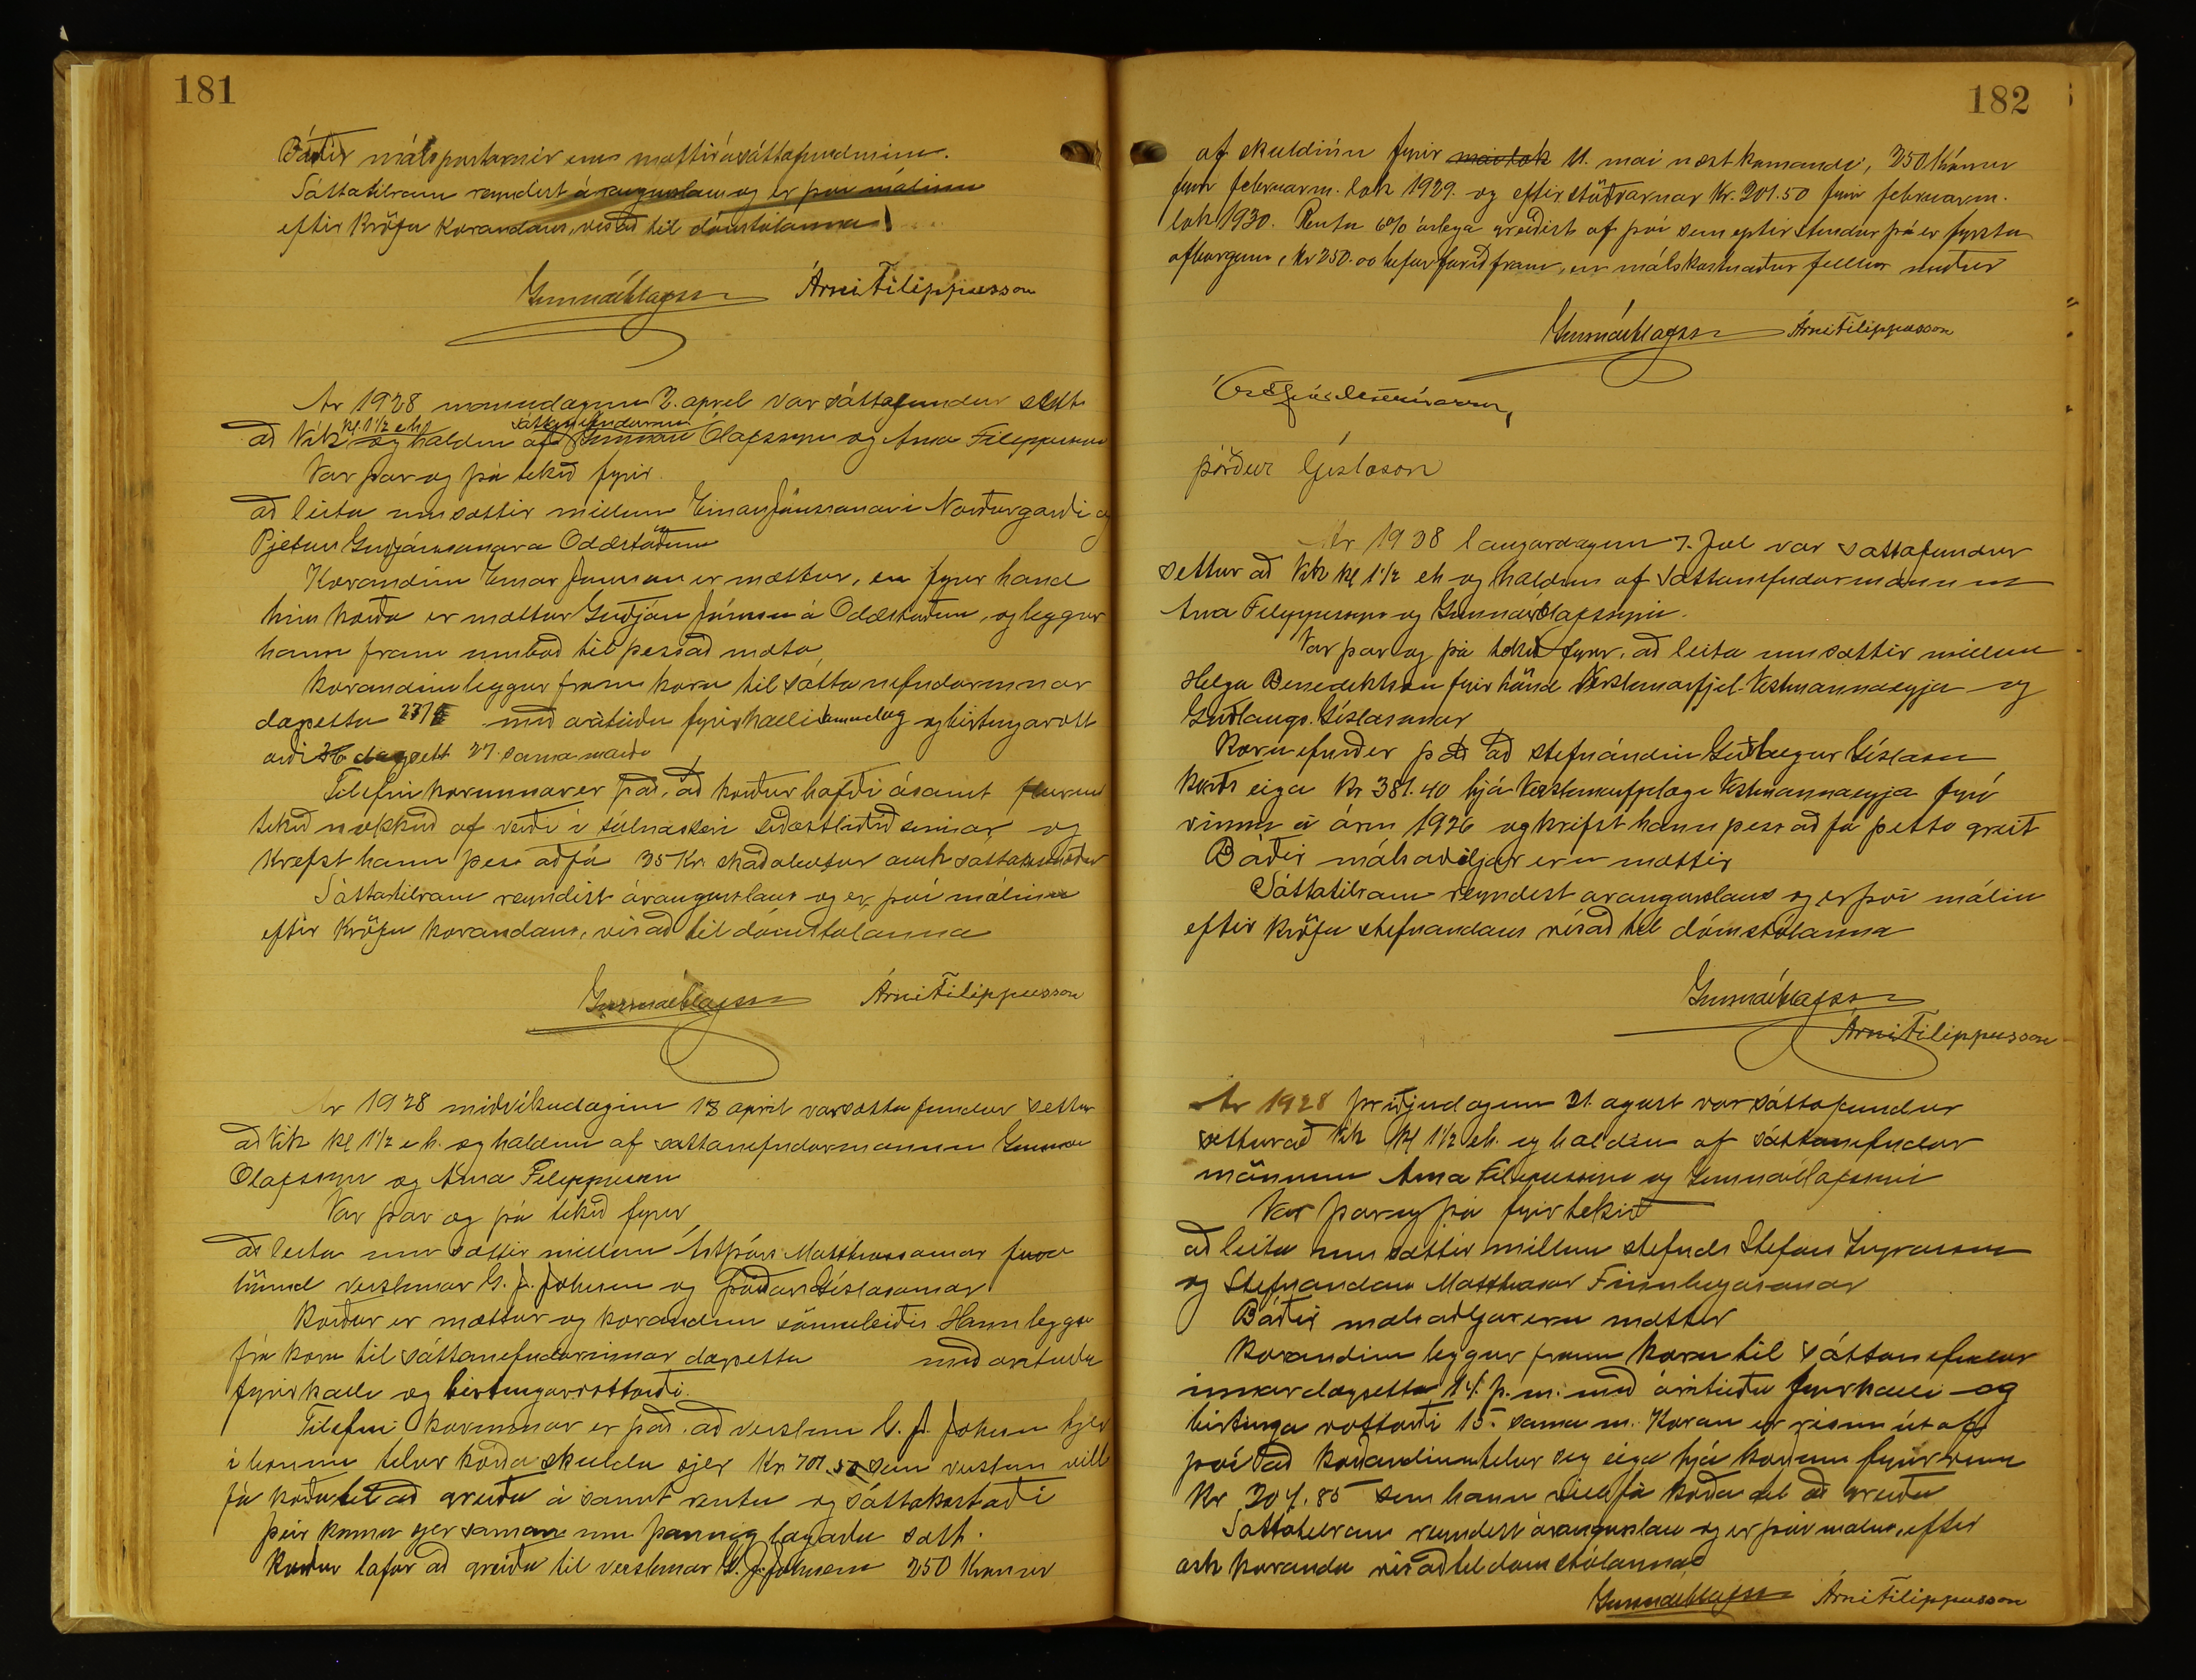 181
Báðir málspartarnir eru mættir á sáttafundinum.
Sáttatilraun reyndist árangurslaus og er því málinu
eftir kröfu kærandans, vísað til dómstólanna
Gunnar Ólafsson Árni Filippusson
Ár 1928 mánudaginn 2. apríl var sáttafundur settur
að Vík kl 1½ eh og haldinn af sáttanefndarmönnum Gunnari Ólafssyni og Árna Filippussyni
Var þar og þá tekið fyrir.
að leita um sættir millum Einars Jónssonar í Norðurgarði og
Pjeturs Guðjónssonar á Oddstöðum
Kærandinn Einar Jónsson er mættur, en fyrir hönd
hins kærða er mættur Guðjón Jónsson á Oddstöðum, og leggur
hann fram umboð til þess að mæta,
Kærandinn leggur fram kæru til sáttanefndarinnar
dagsetta 27/ með árituðu fyrirkalli samdæg og birtingarvott
orði dagsett 27. sama mán.
Tilefni kærunnar er það, að kærður hafði ásamt fleirum
tekið nokkuð af veiði í súlnaskeri síðastliðið sumar og
krefst hann þess að fá 35 Kr. skaðabætur auk sáttakostnaðar
Sáttatilraun reyndist árangurslaus og er því málinu
eftir kröfu kærandans, vísað til dómstólanna
Gunnar Ólafsson Árni Filippusson
Ár 1928 miðvikudaginn 18 apríl var sáttafundur settur
að Vík kl 1½ e.h. og haldinn af sáttanefndarmönnum Gunnari
Ólafssyni og Árna Filippussyni
Var þar og þá tekið fyrir
að leita um sættir millum Ástþórs Matthíassonar fyrir
hönd verslunar G. J. Johnsen og Þórðar Gíslasonar
Kærður er mættur og kærandinn sömuleiðis Hann leggur
fr. kæru til sáttanefndarinnar dagsetta með árituðu
fyrirkalli og birtingarvottorði.
Tilefni kærunnar er það. að verslun G. J. Johnsen hjer
í bænum telur kærða skulda sjer Kr 701.50 sem verslun vill
fá kærða til að greiða ásamt rentu og sáttakostnaði
Þeir komu sjer saman um þannig lagaða sátt.
Kærður lofar að greiða til verslunar G. J. Johnsen 250 Krónur
182
af skuldinni fyrir maílok 11. maí næstkomandi, 250 Krónur
fyrir febrúarm. lok 1929. og eftirstöðvarnar Kr. 201.50 fyrir febrúarm.
lok 1930. Renta 6% árlega greiðist af því sem eptir stendur þá er fyrsta
afborgun, kr 250.00 hefur farið fram, en málskostnaður fellur niður
Gunnar Ólafsson Árni Filippusson
Þórður Gíslason
Ár 1928 laugardaginn 7. Júl var sáttafundur
settur að Vík kl 1½ eh og haldinn af sáttanefndarmönnum
Árna Filippussyni og Gunnari Ólafssyni.
Var þar og þá tekið fyrir, að leita um sættir millum
Helga Benediktssonar fyrir hönd Verslunarfjel. Vestmannaeyja og
Guðlaugs Gíslasonar
Kæruefnið er það að stefnandinn Guðlaugur Gíslason
kveðst eiga Kr 381.40 hjá Verslunarfjelagi Vestmannaeyja fyrir
vinnu á árinu 1926 og krefst hann þess að fá þetta greitt
Báðir málsaðiljar eru mættir
Sáttatilraun reyndist árangurslaus og er því málinu
eftir kröfu stefnandans vísað til dómstólanna
Gunnar Ólafsson
Árni Filippusson
Ár 1928 þriðjudaginn 21. ágúst var sáttafundur
settur að Vík kl 1½ eh. og haldinn af sáttanefndar
mönnum Árna Filippussyni og Gunnari Ólafssyni
Var þar og þá fyrir tekið
að leita um sættir millum stefnds Stefáns Ingvarssonar
og Stefnandans Matthíasar Finnbogasonar
Báðir málsaðiljar eru mættir
Kærandinn leggur fram kæru til sáttanefndar
innar dagsetta 14. þ.m. með árituðu fyrirkalli og
birtinga vottorði 15. sama m. Kæran er risin út af
því að kærandinn telur sig eiga hjá kærðum fyrir vinnu
Kr 204.85 sem hann vill fá kærða til að greiða
Sáttatilraun reyndist árangurslaus og er því málinu, eftir
ósk kæranda vísað til dómstólanna
Gunnar Ólafsson Árni Filippusson